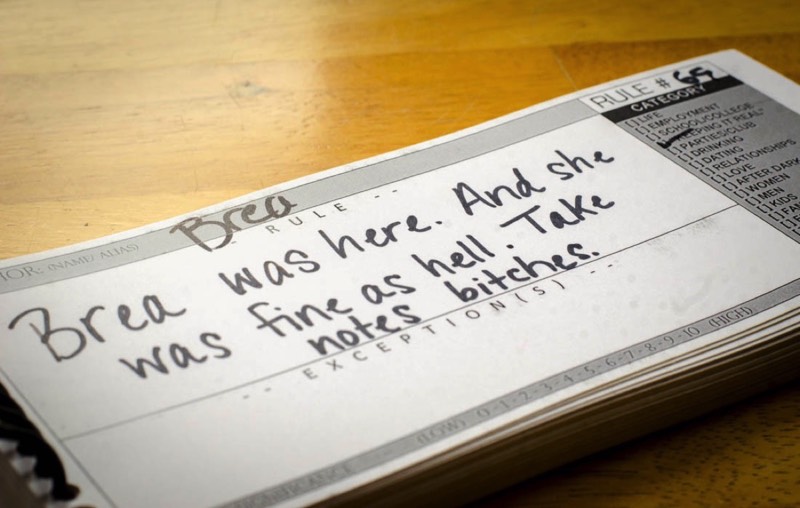 RULE # 65
CATEGORY
[ ] LIFE
[ ] EMPLOYMENT
[ ] SCHOOL/COLLEGE
"KEEPING IT REAL"
[ ] PARTIES/CLUB
[ ] DRINKING
[ ] DATING
[ ] RELATIONSHIPS
[ ] LOVE
[ ] AFTER DARK
[ ] WOMEN
[ ] MEN
[ ] KIDS
(NAME/ ALIAS)
Brea
- - RULE - -
Brea was here. And she
was fine as hell. Take
notes bitches.
- - EXCEPTION(S) - -
(LOW) 0-1-2-3-4-5-6-7-8-9-10 (HIGH)